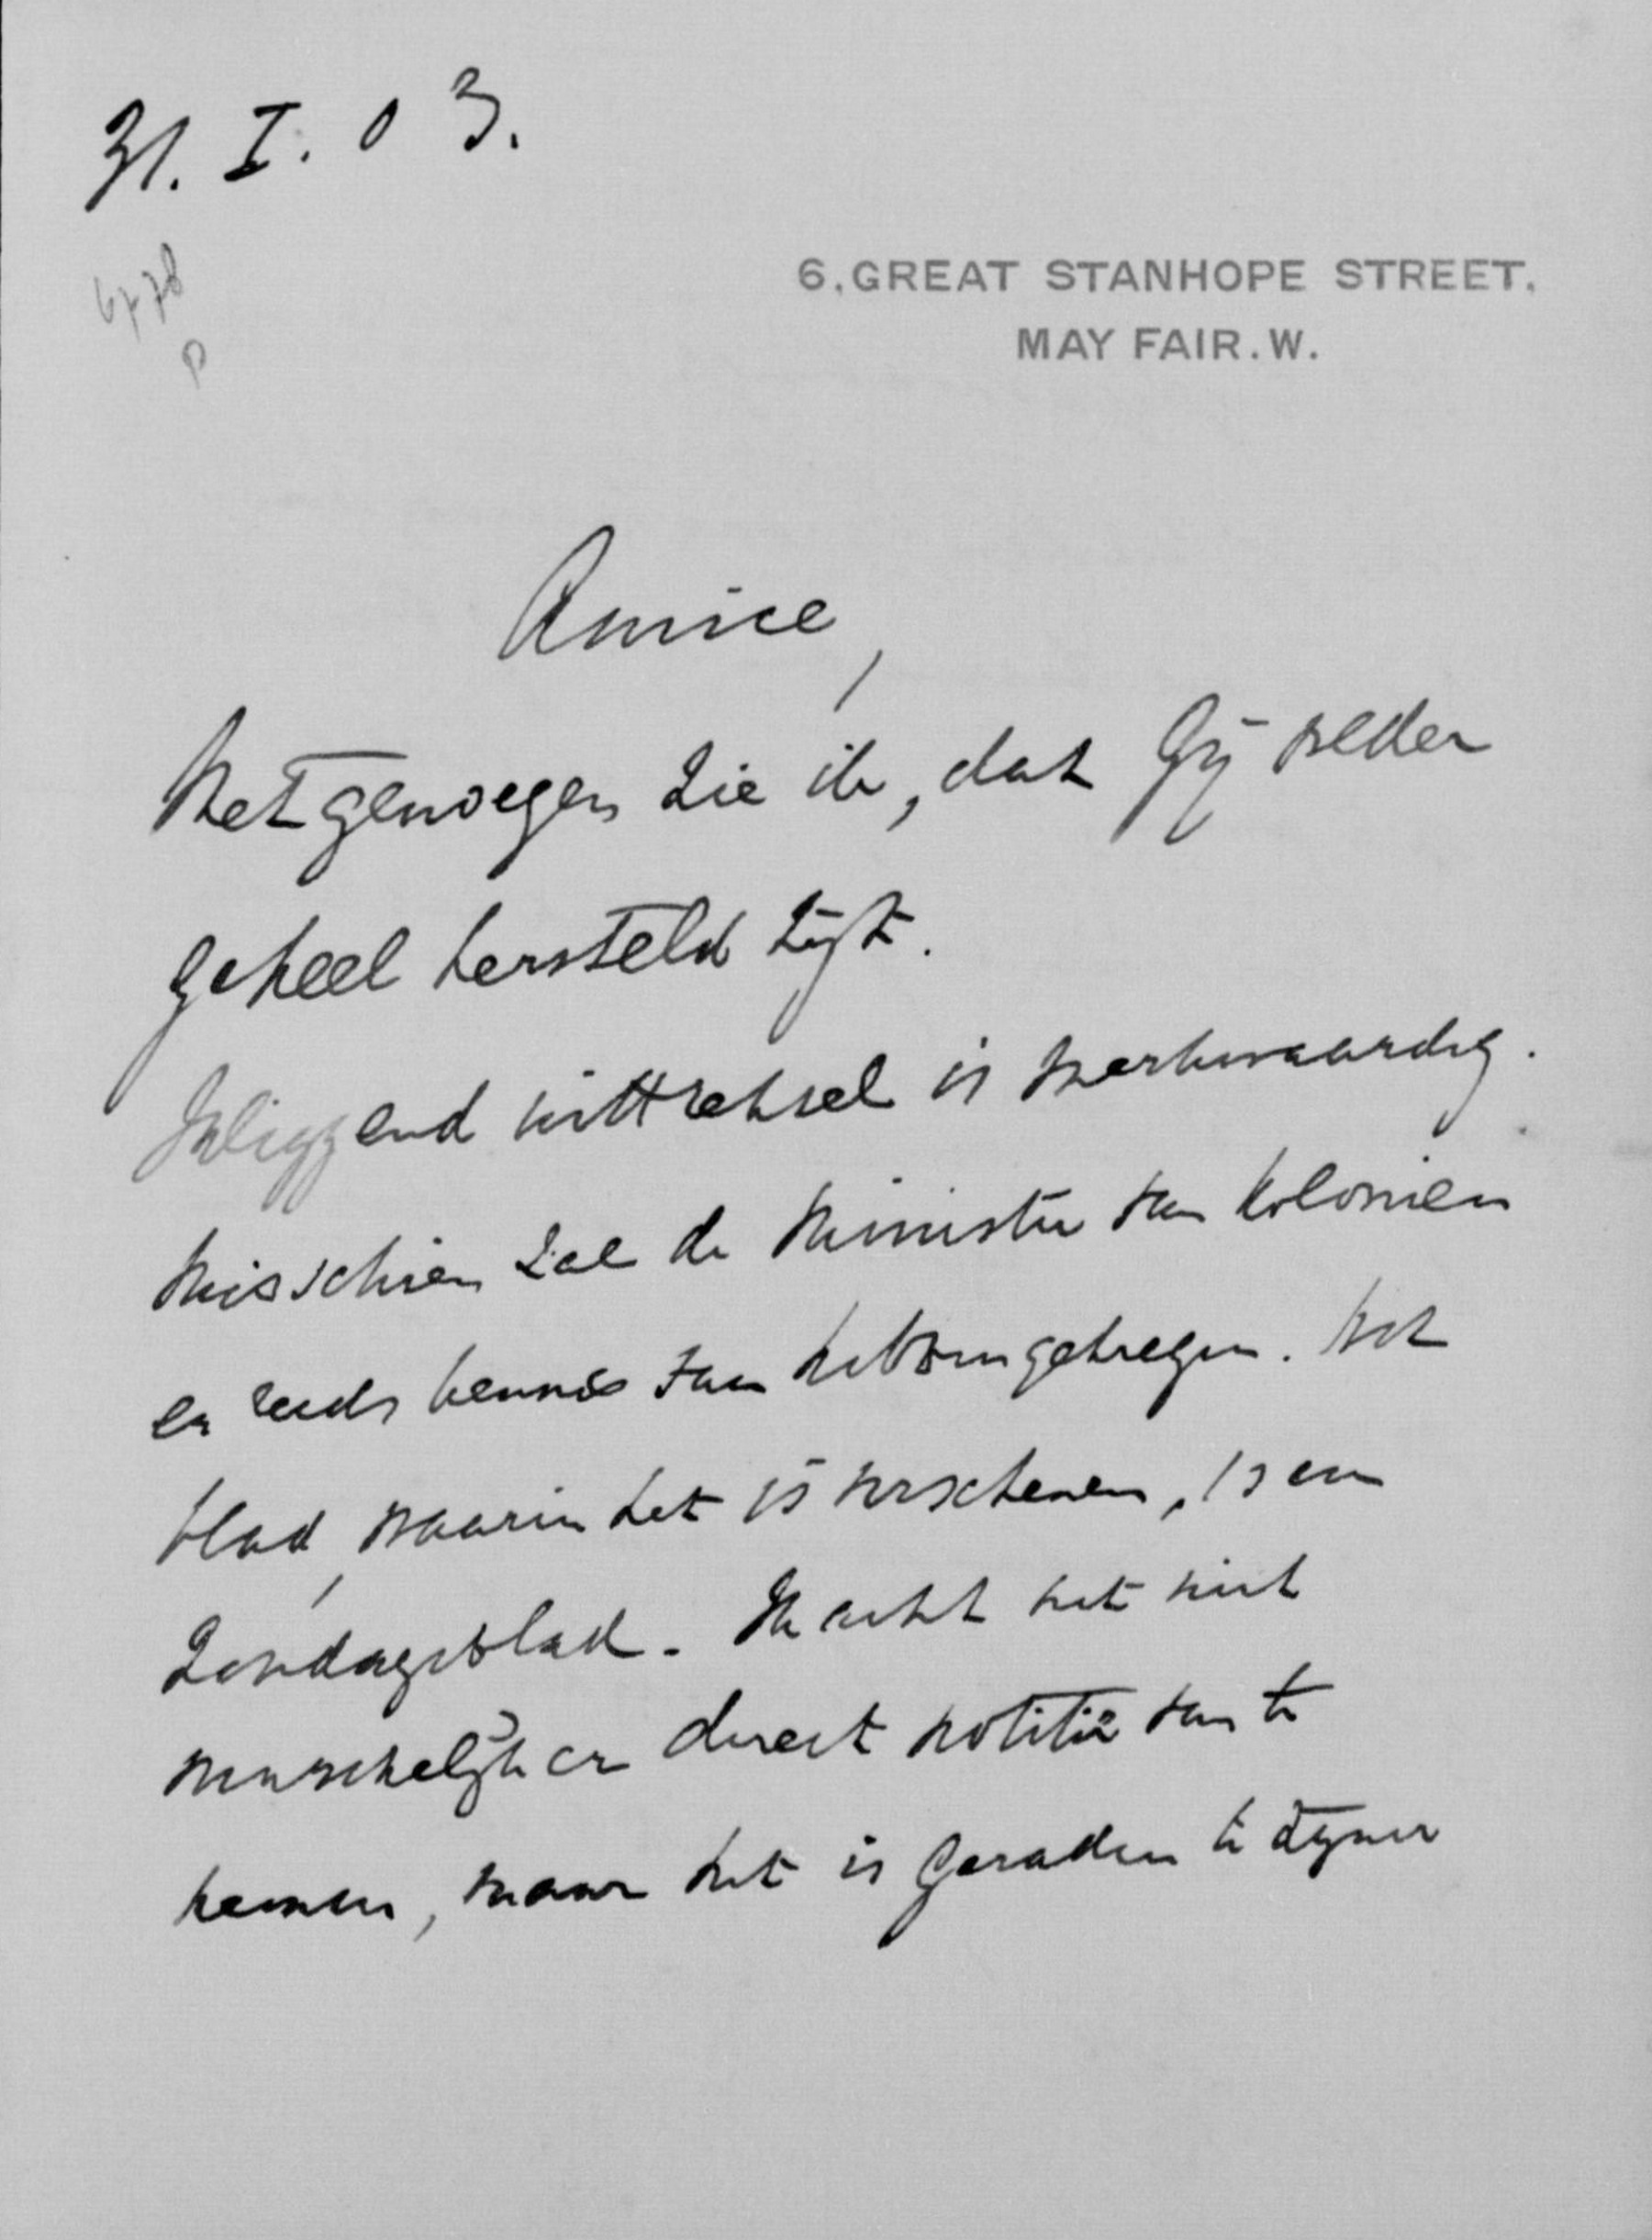 31. I. 03.
6778
P
6, GREAT STANHOPE STREET.
MAY FAIR. W.
Amice,
Met genoegen zie ik, dat Gij weder
geheel hersteld zijt.
Inliggend uittreksel is merkwaardig.
Misschien zal de Minister van Kolonien
er reeds kennis van hebben gekregen. Het
blad, waarin het is verschenen, is een
Zondagsblad. Ik acht het niet
wenschelijk er direct notitie van te
nemen, maar het is geraden te zijner